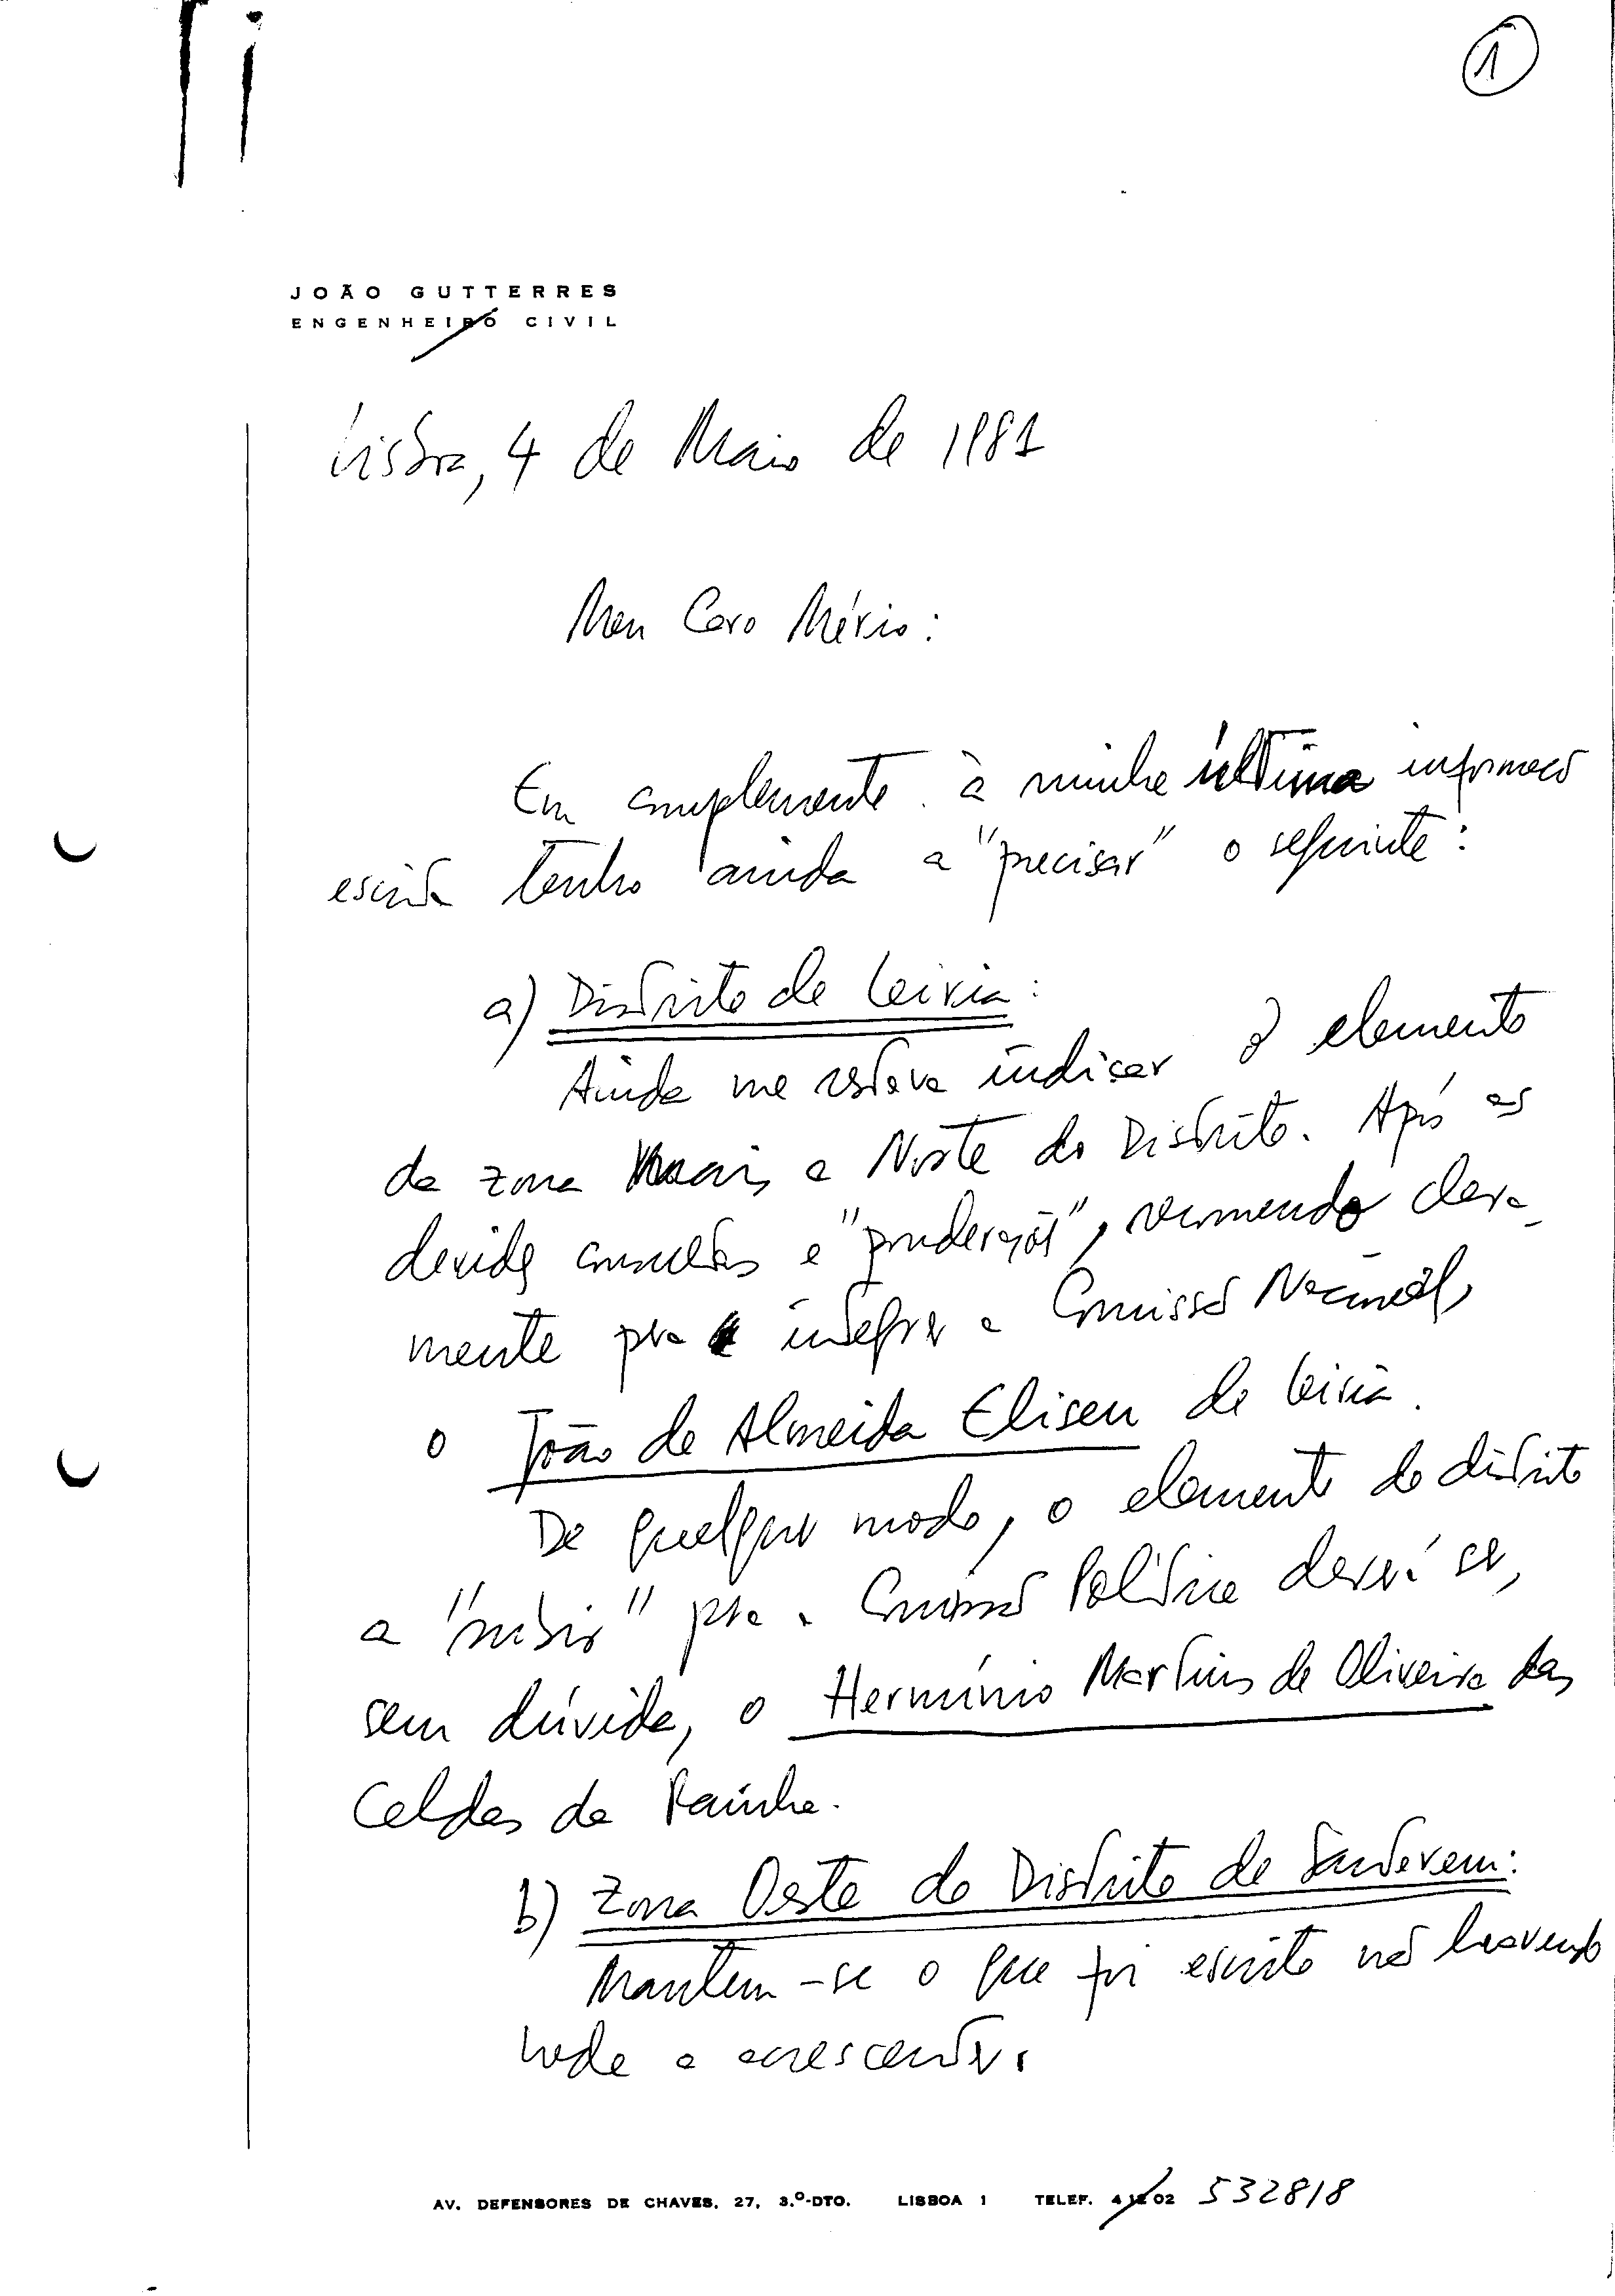 1
JOÃO GUTTERRES
ENGENHEIRO CIVIL
Lisboa, 4 de Maio de 1981
Meu Caro Mário:
Em complemento à minha última informação
escrita tenho ainda a "precisar" o seguinte:
a) Distrito de Leiria:
Ainda me restava indicar o elemento
da zona mais a Norte do Distrito. Após as
devidas consultas e "ponderações", recomendo clara-
mente para integrar a Comissão Nacional,
o João de Almeida Eliseu de Leiria.
De qualquer modo, o elemento do distrito
a "subir" para a Comissão Política deverá ser,
sem dúvida, o Hermínio Martins de Oliveira das
Caldas da Rainha.
b) Zona Oeste do Distrito de Santarém:
Mantem-se o que foi escrito não havendo
nada a acrescentar.
AV. DEFENSORES DE CHAVES, 27, 3.º-DTO. LISBOA 1 TELEF. 02 532818